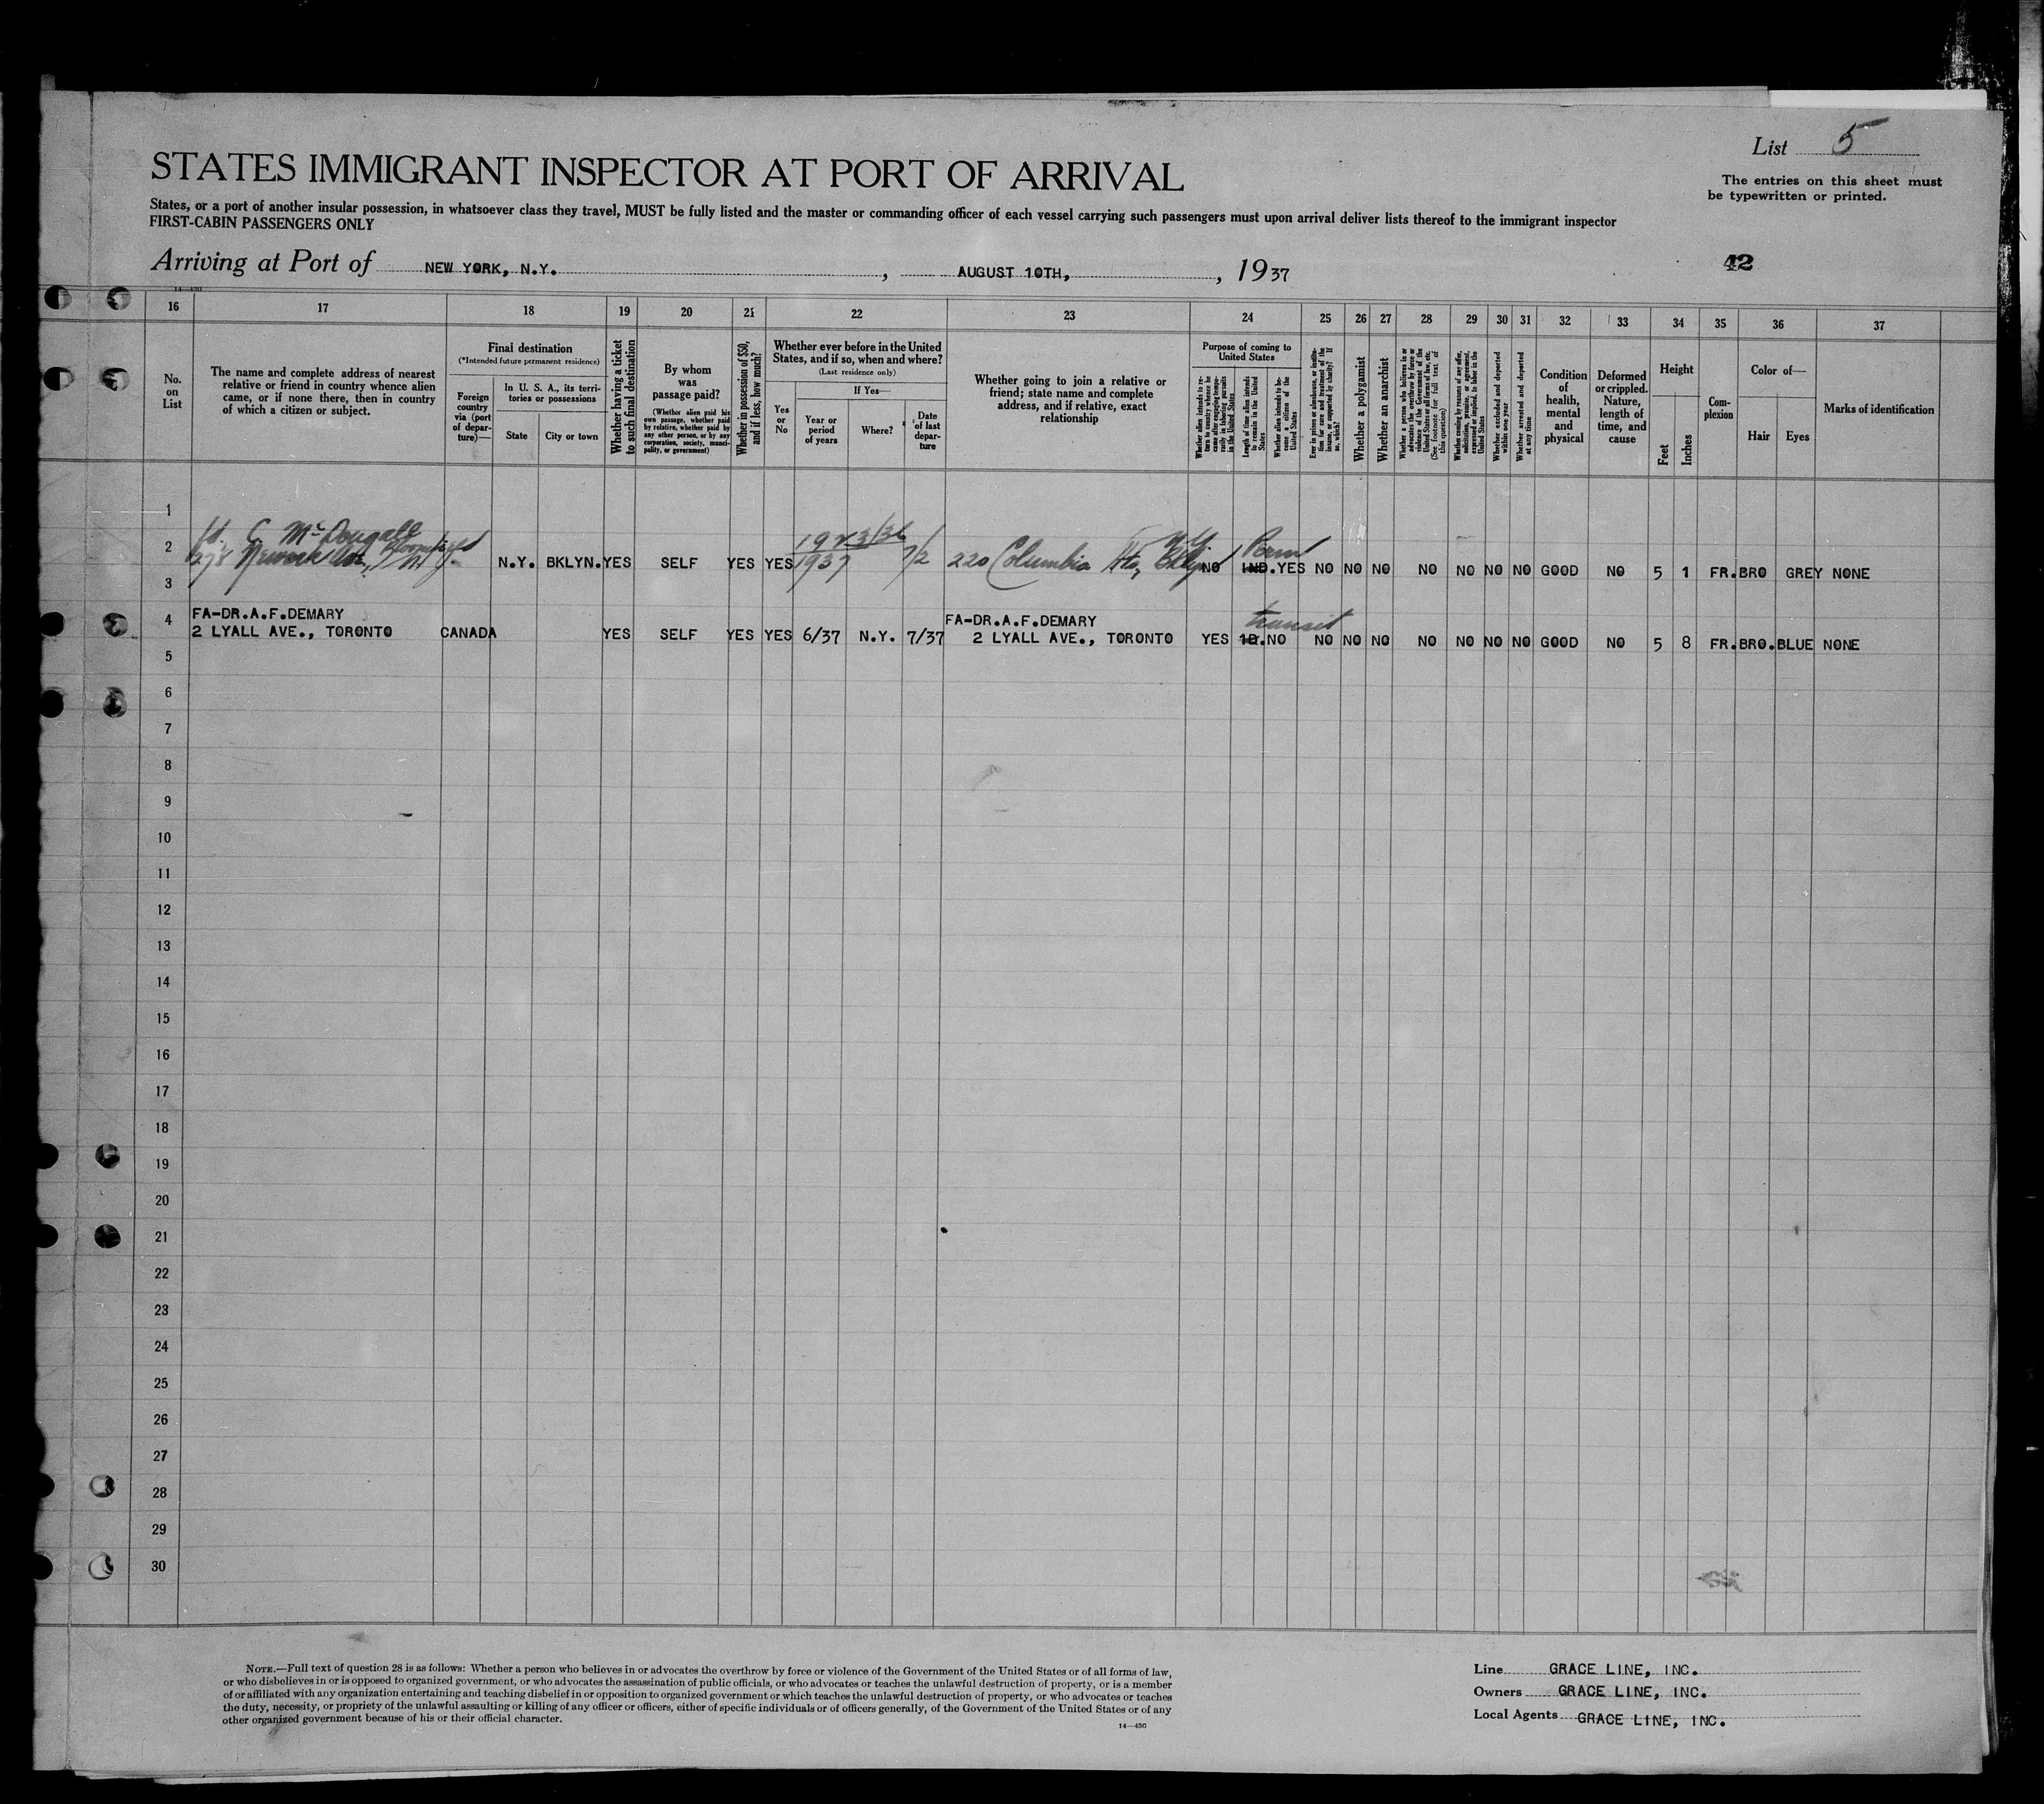 List 5
STATES IMMIGRANT INSPECTOR AT PORT OF ARRIVAL
The entries on this sheet must
be typewritten or printed.
States, or a port of another insular possession, in whatsoever class they travel, MUST be fully listed and the master or commanding officer of each vessel carrying such passengers must upon arrival deliver lists thereof to the immigrant inspector
FIRST-CABIN PASSENGERS ONLY
Arriving at Port of NEW YORK, N.Y. , AUGUST 10TH, , 1937
42
14—430
16 17 18 19 20 21 22 23 24 25 26 27 28 29 30 31 32 33 34 35 36 37
No.
on
List
The name and complete address of nearest
relative or friend in country whence alien
came, or if none there, then in country
of which a citizen or subject.
Final destination
(*Intended future permanent residence)
Foreign
country
via (port
of depar-
ture)—
In U. S. A., its terri-
tories or possessions
State
City or town
Whether having a ticket
to such final destination
By whom
was
passage paid?
(Whether alien paid his
own passage, whether paid
by relative, whether paid by
any other person, or by any
corporation, society, munci-
pality, or government)
Whether in possession of $50,
and if less, how much?
Whether ever before in the United
States, and if so, when and where?
(Last residence only)
Yes
or
No
If Yes—
Year or
period
of years
Where?
Date
of last
depar-
ture
Whether going to join a relative or
friend; state name and complete
address, and if relative, exact
relationship
Purpose of coming to
United States
Whether alien intends to re-
turn to country whence he
came after engaging tempo-
rarily in laboring pursuits
in the United States
Length of time alien intends
to remain in the United
States
Whether alien intends to be-
come a citizen of the
United States
Ever in prison or almshouse, or institu-
tion for care and treatment of the
insane, or supported by charity? If
so, which?
Whether a polygamist
Whether an anarchist
Whether a person who believes in or
advocates the overthrow by force or
violence of the Government of the
United States or all forms of law, etc.
(See footnote for full text of
this question)
Whether coming by reason of any offer,
solicitation, promise, or agreement,
expressed or implied, to labor in the
United States
Whether excluded and deported
within one year
Whether arrested and deported
at any time
Condition
of
health,
mental
and
physical
Deformed
or crippled.
Nature,
length of
time, and
cause
Height
Feet
Inches
Com-
plexion
Color of—
Hair
Eyes
Marks of identification
1
C. McDougall
2 278 Newark Ave., Bloomfield N.J. N.Y. BKLYN. YES SELF YES YES 1923/36 1937 7/2 220 Columbia Hts, Bklyn N.Y. NO IND. Perm YES NO NO NO NO NO NO NO GOOD NO 5 1 FR. BRO GREY NONE
3
FA-DR.A.F.DEMARY FA-DR.A.F.DEMARY transit
4 2 LYALL AVE., TORONTO CANADA YES SELF YES YES 6/37 N.Y. 7/37 2 LYALL AVE., TORONTO YES 1D. NO NO NO NO NO NO NO NO GOOD NO 5 8 FR. BRO. BLUE NONE
5
6
7
8
9
10
11
12
13
14
15
16
17
18
19
20
21
22
23
24
25
26
27
28
29
30
NOTE.—Full text of question 28 is as follows: Whether a person who believes in or advocates the overthrow by force or violence of the Government of the United States or of all forms of law,
or who disbelieves in or is opposed to organized government, or who advocates the assassination of public officials, or who advocates or teaches the unlawful destruction of property, or is a member
of or affiliated with any organization entertaining and teaching disbelief in or opposition to organized government or which teaches the unlawful destruction of property, or who advocates or teaches
the duty, necessity, or propriety of the unlawful assaulting or killing of any officer or officers, either of specific individuals or of officers generally, of the Government of the United States or of any
other organized government because of his or their official character.
14—430
Line GRACE LINE, INC.
Owners GRACE LINE, INC.
Local Agents GRACE LINE, INC.